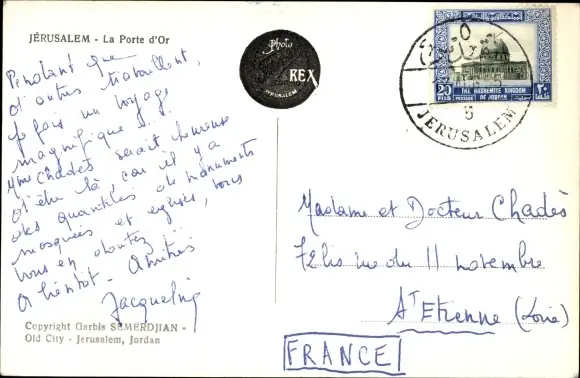 JÉRUSALEM - La Porte d'Or
Pendant que
d'autres travaillent,
je fais un voyage
magnifique !..
Mme Chadès serait heureuse
d'être là car il y a
des quantités de monuments
mosquées et églises, vous
vous en doutez ...
A bientôt - Amitiés
Jacqueline
Copyright Garbis SEMERDJIAN -
Old City - Jerusalem, Jordan
Photo
REX
JERUSALEM
20
FILS
THE HASHEMITE KINGDOM
POSTAGE OF JORDAN
٢٠
القدس
5
JERUSALEM
Madame et Docteur Chadès
rue du 11 novembre
St Etienne (Loire)
FRANCE